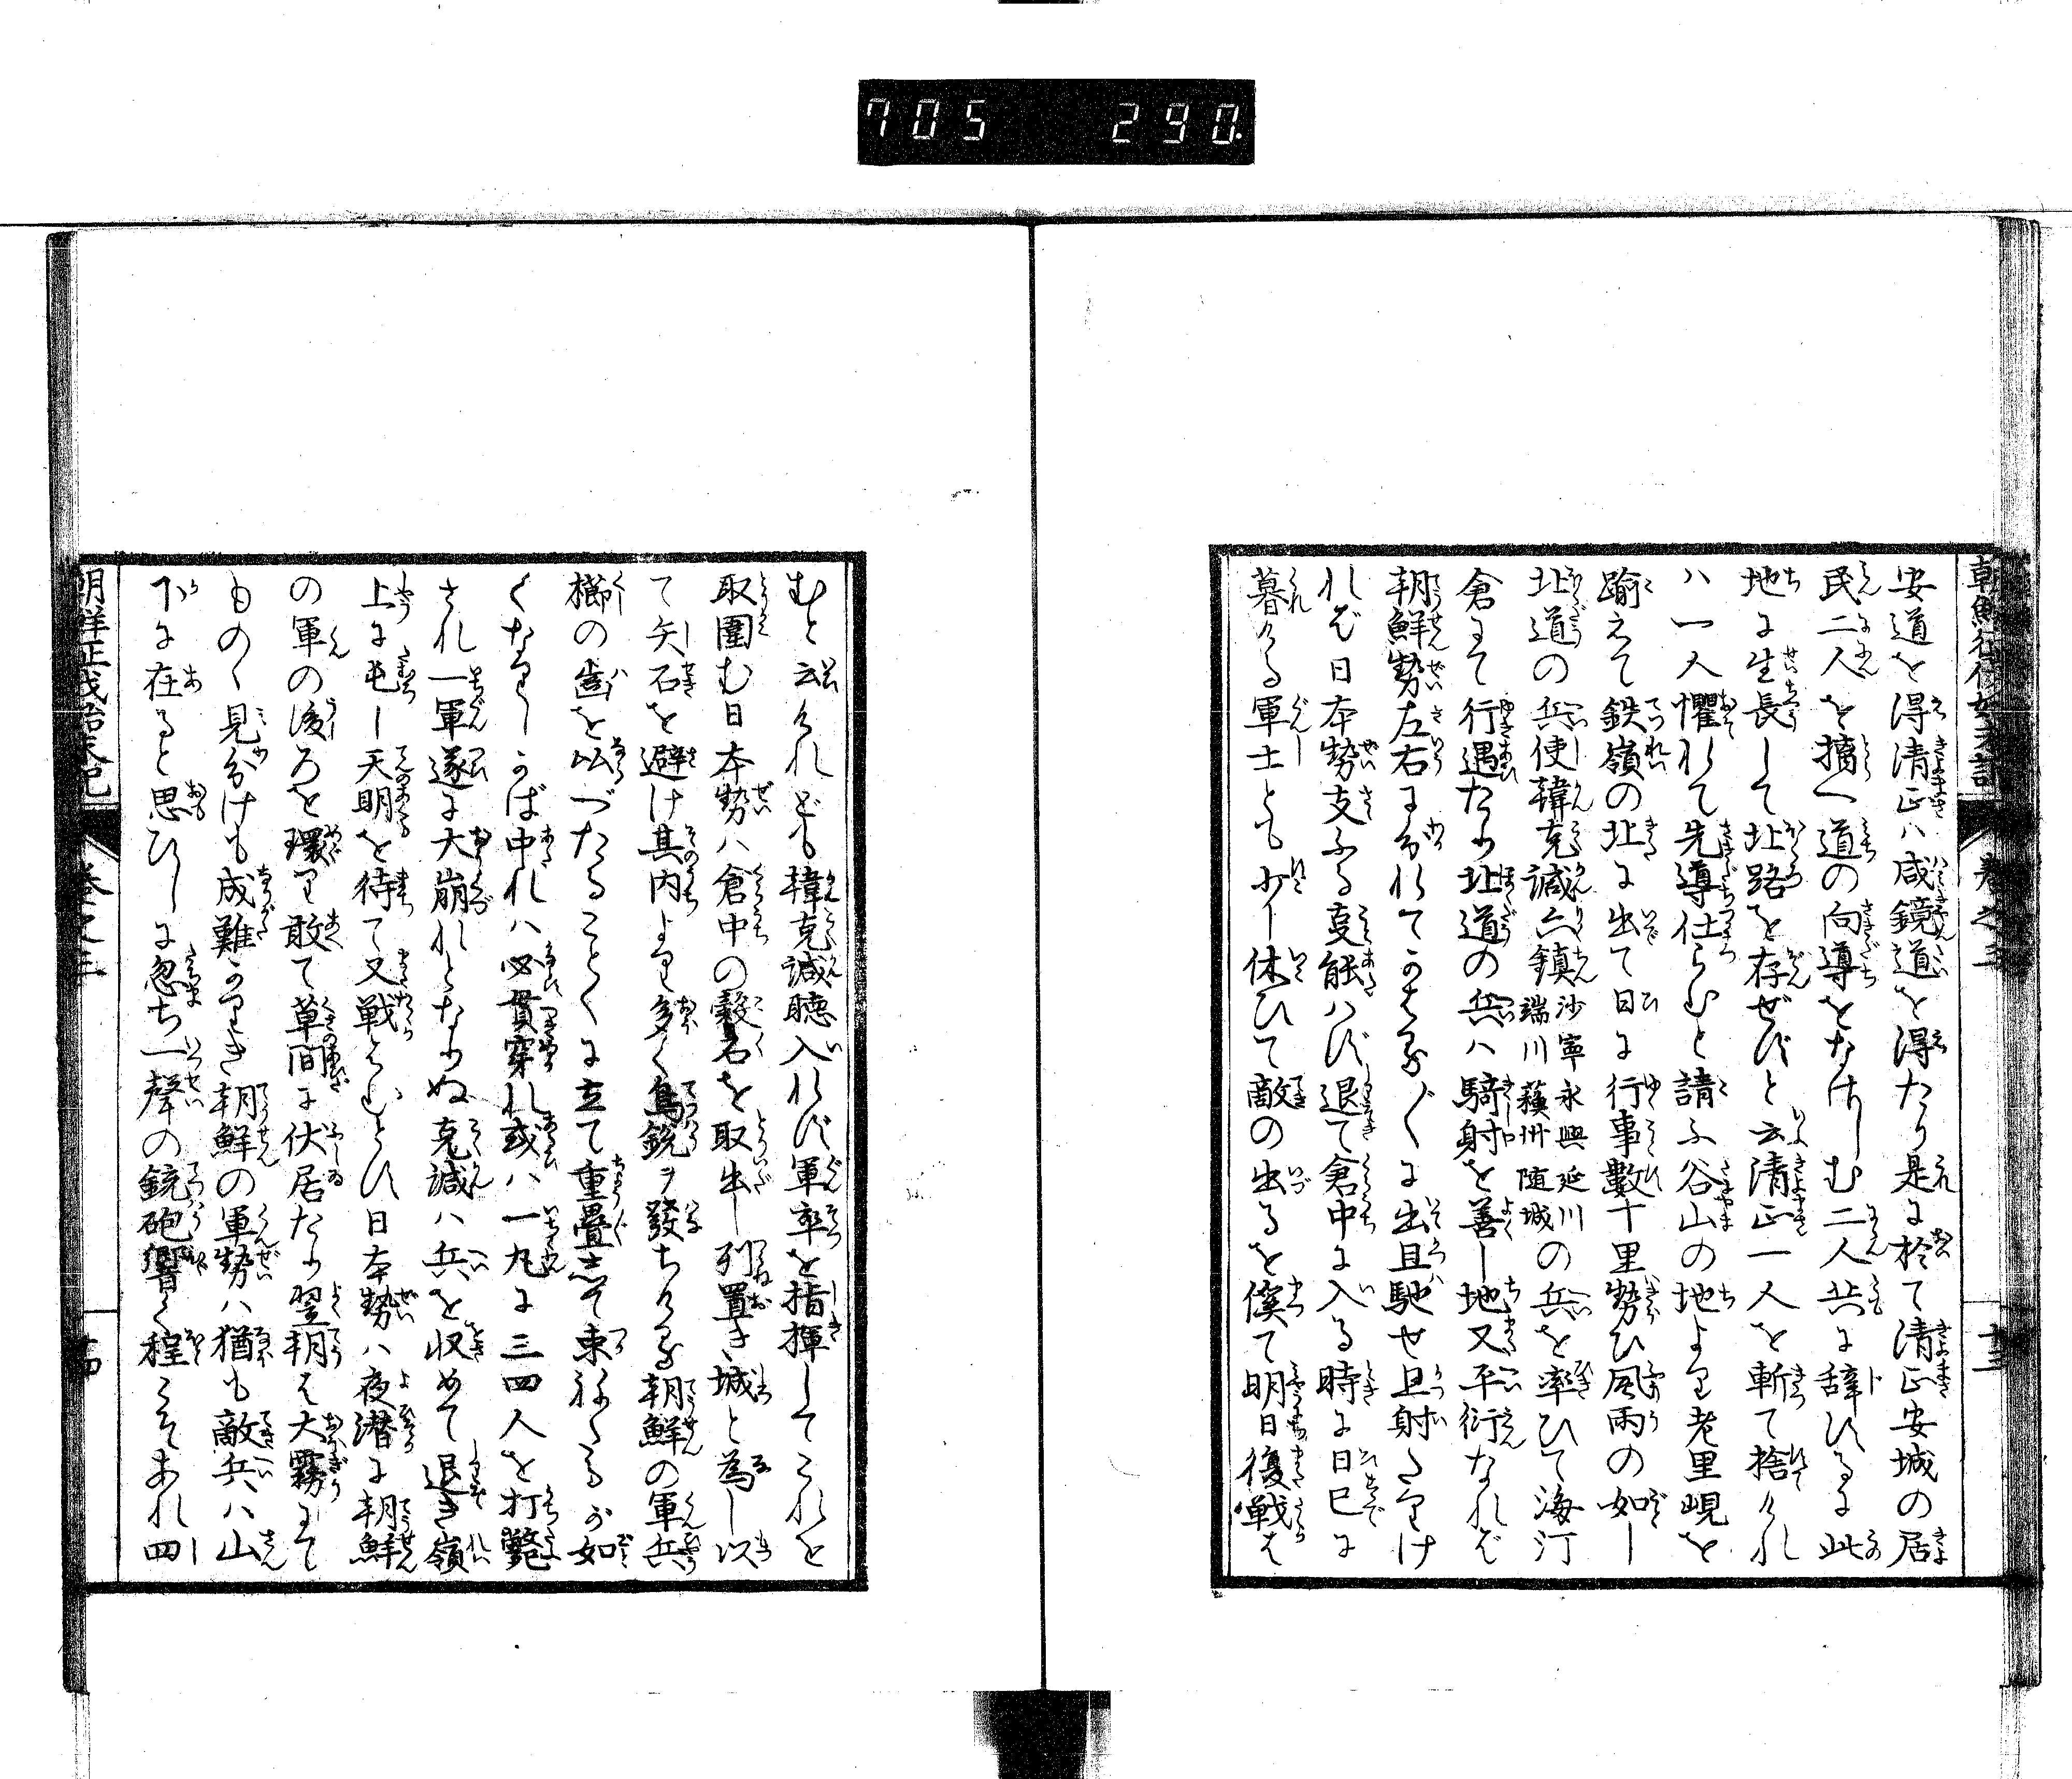 705 290.
朝鮮征伐始末記 巻之三 十三
安道を得清正ハ咸鏡道を得たり是に於て清正安城の居
民二人を擒へ道の向導をなさしむ二人共に辞するに此
地に生長して北路を存ぜずと云清正一人を斬て捨けれ
ハ一人懼れて先導仕らむと請ふ谷山の地より老里峴を
踰えて鉄嶺の北に出て日に行事數十里勢ひ風雨の如し
北道の兵使韓克諴六鎮沙寧永興延川端川蘓州随城の兵を率ひて海汀
倉にて行遇たり北道の兵ハ騎射を善し地又平衍なれば
朝鮮勢左右にわかれてかはる〲に出且馳せ且射たりけ
れば日本勢支ふる叓能ハず退て倉中に入る時に日已に
暮ける軍士とも少し休ひて敵の出るを俟て明日復戦は
むと云けれども韓克諴聴入れず軍卒を指揮してこれを
取圍む日本勢ハ倉中の穀石を取出し列置き城と為し以
て矢石を避け其内より多く鳥銃ヲ發ちける朝鮮の軍兵
櫛の歯を比づたることくに立て重疊して束ねたるが如
くなりしかば中れハ必貫穿れ或ハ一丸に三四人を打斃
され一軍遂に大崩れとなりぬ克諴ハ兵を収めて退き嶺
上に屯し天明を待て又戦はむとす日本勢ハ夜潜に朝鮮
の軍の後ろを環り敢て草間に伏居たり翌朝は大霧にて
ものゝ見分けも成難かりき朝鮮の軍勢ハ猶も敵兵ハ山
下に在ると思ひしに忽ち一聲の銃砲響く程こそあれ四
朝鮮征伐始末記 巻之三 十四